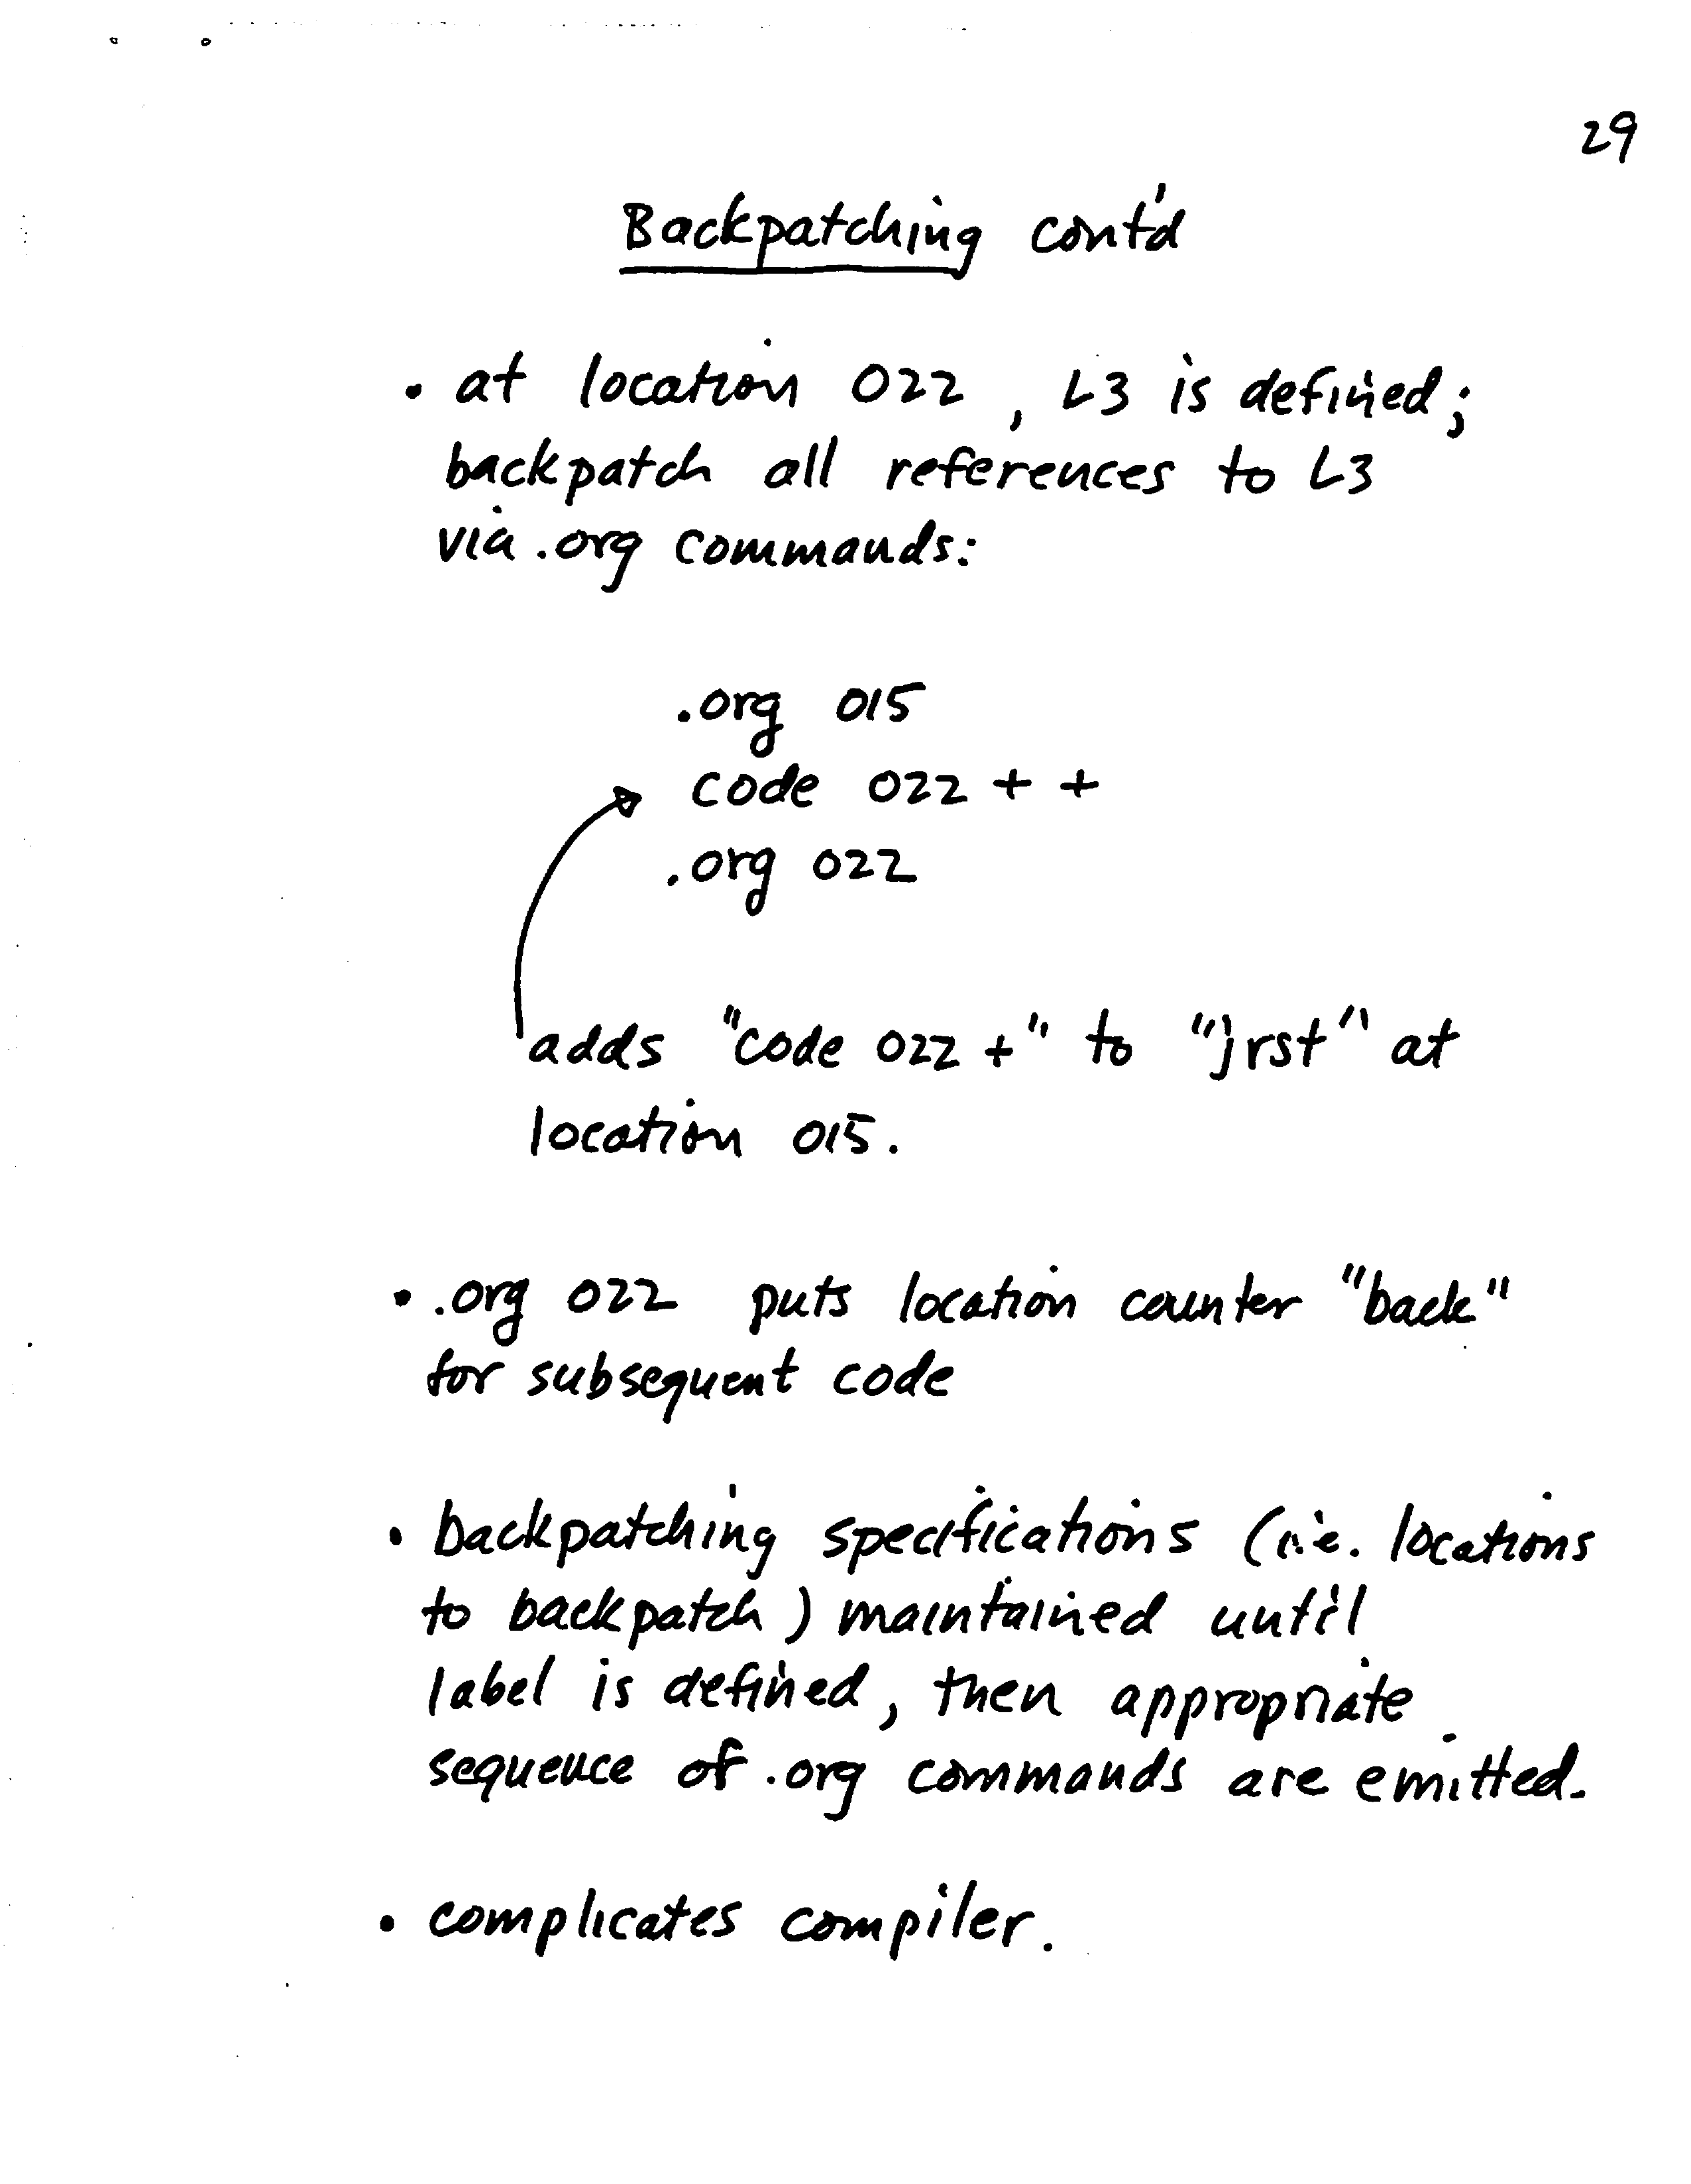 29
Backpatching cont'd
• at location 022, L3 is defined;
backpatch all references to L3
via .org commands:
.org 015
code 022 + +
.org 022
adds "code 022 +" to "jrst" at
location 015.
• .org 022 puts location counter "back"
for subsequent code
• backpatching specifications (i.e. locations
to backpatch) maintained until
label is defined, then appropriate
sequence of .org commands are emitted.
• complicates compiler.